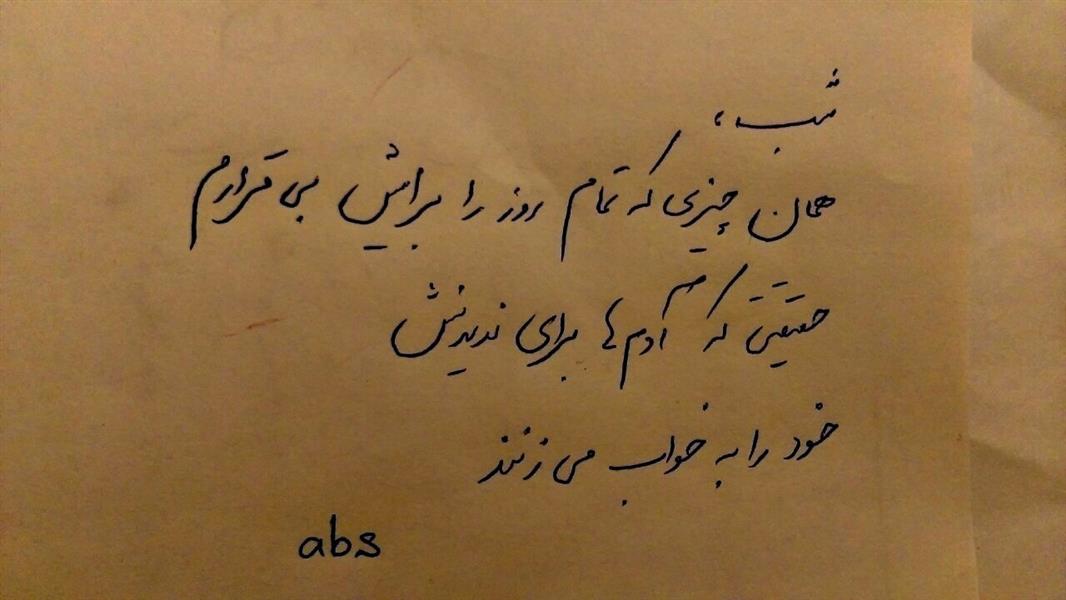 شب،
همان چیزی که تمام روز را برایش بی قرارم
حقیقتی که آدم ها برای ندیدنش
خود را به خواب می زنند
abs